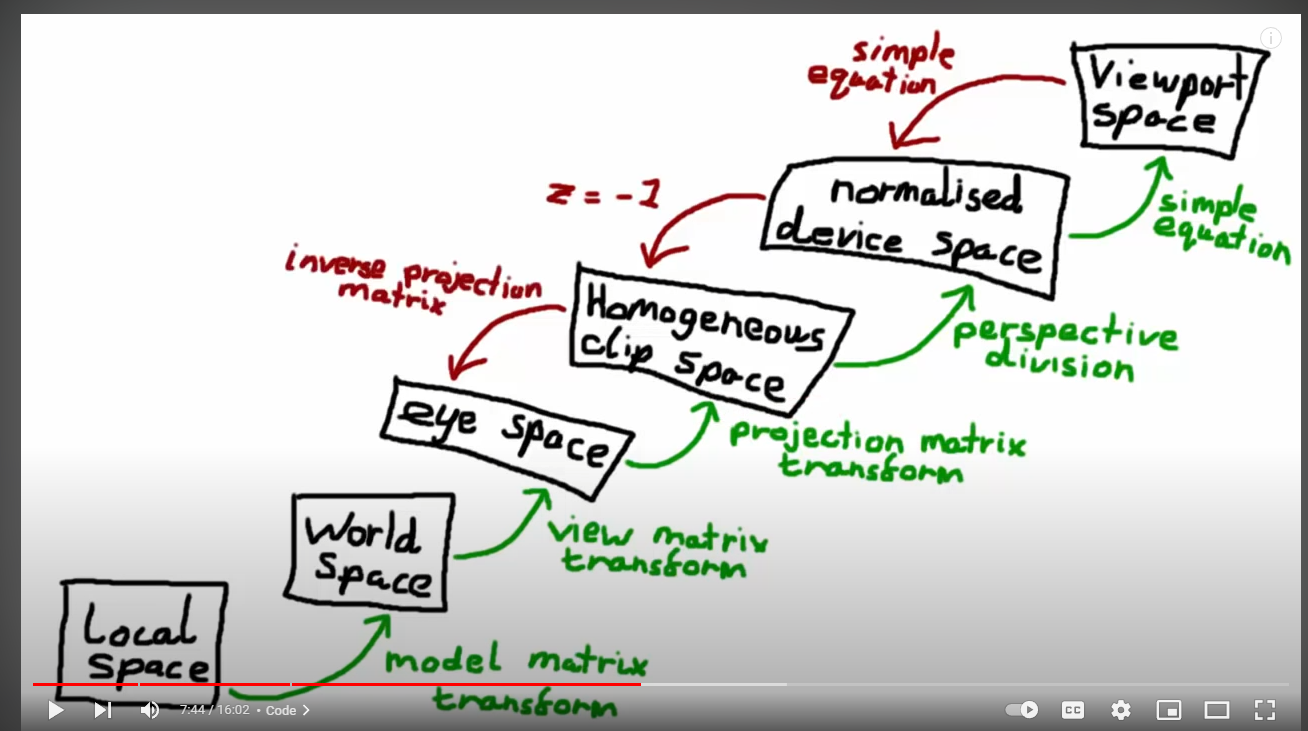 simple
equation
Viewport
space
normalised
device space
simple
equation
z = -1
inverse projection
matrix
Homogeneous
clip space
perspective
division
eye space
projection matrix
transform
World
Space
view matrix
transform
Local
Space
model matrix
transform
7:44 / 16:02 • Code >
CC